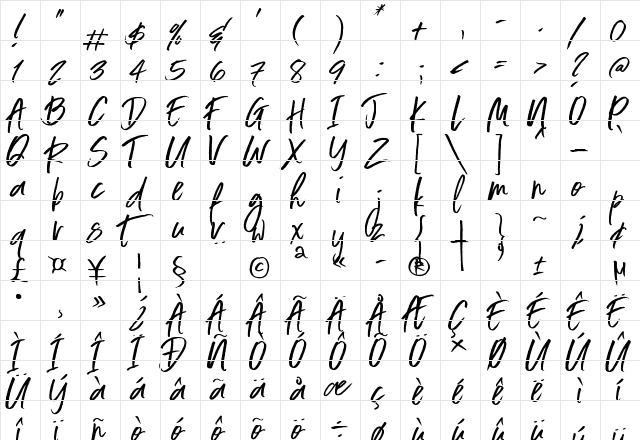 ! " # $ % & ' ( ) * + , - . / 0
1 2 3 4 5 6 7 8 9 : ; < = > ? @
A B C D E F G H I J K L M N O P
Q R S T U V W X Y Z [ \ ] ^ _ `
a b c d e f g h i j k l m n o p
q r s t u v w x y z { | } ~ ¡ ¢
£ ¤ ¥ ¦ § ¨ © ª « - ® ¯ ± µ
· ¸ » ¿ À Á Â Ã Ä Å Æ Ç È É Ê Ë
Ì Í Î Ï Ð Ñ Ò Ó Ô Õ Ö × Ø Ù Ú Û
Ü Ý à á â ã ä å æ ç è é ê ë ì í
î ï ñ ò ó ô õ ö ÷ ø ù ú û ü